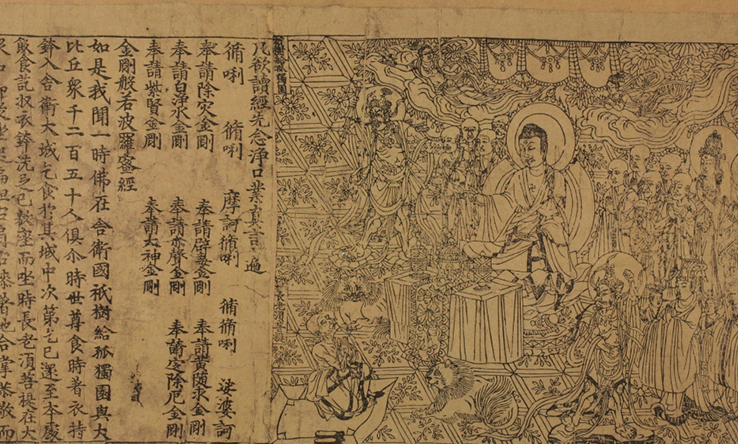 凡欲讀經先念淨口業真言一遍
脩唎 脩唎 摩訶脩唎 脩脩唎 娑婆訶
奉請除灾金剛 奉請辟毒金剛 奉請黃隨求金剛
奉請白淨水金剛 奉請赤聲金剛 奉請定除厄金剛
奉請紫賢金剛 奉請大神金剛
金剛般若波羅蜜經
如是我聞一時佛在舍衛國祇樹給孤獨園與大
比丘衆千二百五十人俱尒時世尊食時著衣持
鉢入舍衛大城乞食於其城中次第乞已還至本處
飯食訖収衣鉢洗足已敷座而坐時長老須菩提在大
衆中即從坐起偏袒右肩右膝著地合掌恭敬而